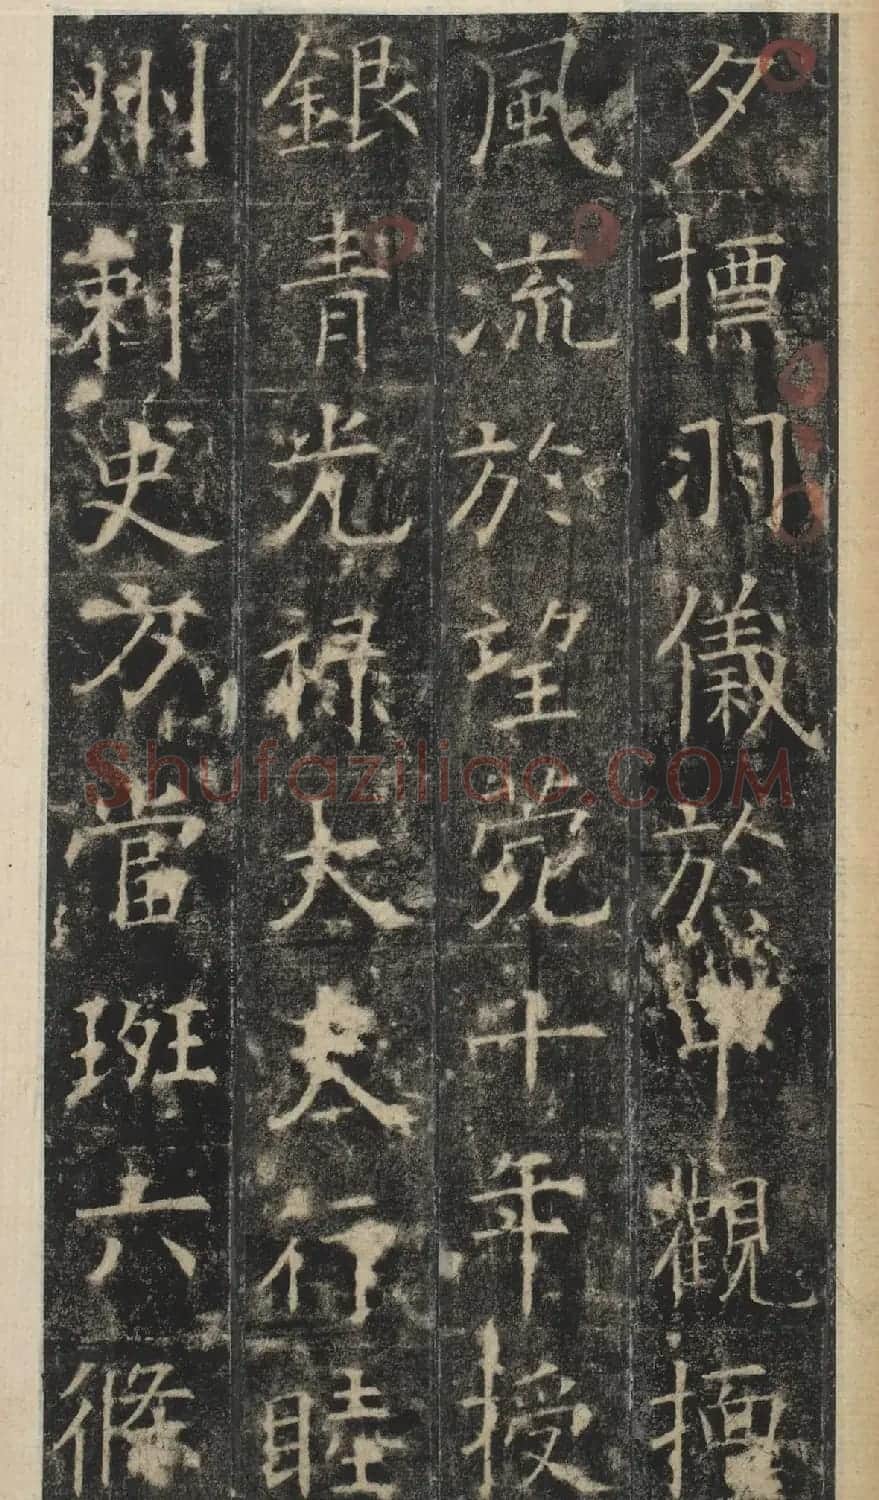 夕摽羽儀於甲觀摽
風流於望菀十年授
銀青光禄大夫行睦
州刺史方當班六條
Shufaziliao.COM